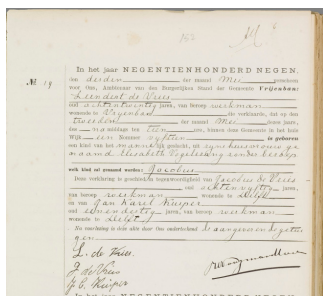 162
In het jaar NEGENTIENHONDERD NEGEN,
No. 19
den derden der maand Mei verscheen
voor Ons, Ambtenaar van den Burgerlijken Stand der Gemeente Vrijenban:
Leendert de Vries
oud achtentwintig jaren, van beroep werkman
wonende te Vrijenban die verklaarde, dat op den
tweeden der maand Mei dezes jaars,
des middags ten tien ure, binnen deze Gemeente in het huis
Wijk een Nommer vijftien is geboren
een kind van het mannelijk geslacht, uit zijne huisvrouw ge
naamd Elisabeth Vogelesang zonder beroep
welk kind zal genaamd worden: Jacobus
Deze verklaring is geschied in tegenwoordigheid van Jacobus de Vries
oud achtenvijftig jaren,
van beroep werkman wonende te Delft
en van Jan Karel Kuiper
oud zevenendertig jaren, van beroep werkman
wonende te Delft
Na voorlezing is deze akte door Ons onderteekend de aangever en de getui
gen
L. de Vries
J de Vries
J. C. Kuiper